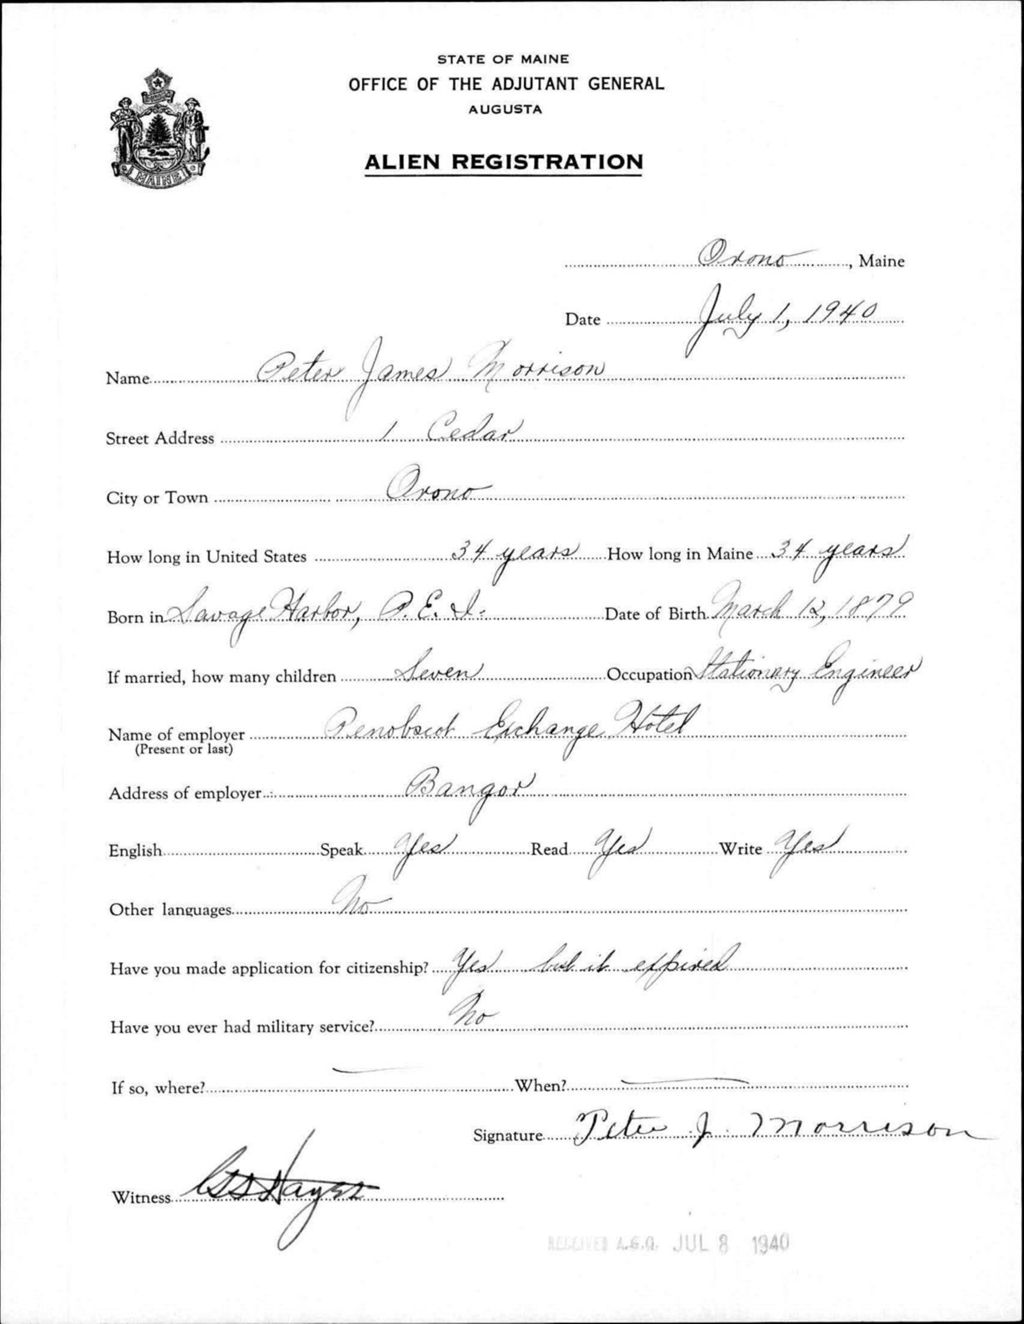 STATE OF MAINE
OFFICE OF THE ADJUTANT GENERAL
AUGUSTA
ALIEN REGISTRATION
MAINE
Orono, Maine
Date July 1, 1940
Name Peter James Morrison
Street Address 1 Cedar
City or Town Orono
How long in United States 34 years How long in Maine 34 years
Born in Savage Harbor, P. E. I. Date of Birth March 12, 1879
If married, how many children Seven Occupation Stationary Engineer
Name of employer Penobscot Exchange Hotel
(Present or last)
Address of employer Bangor
English Speak Yes Read Yes Write Yes
Other languages No
Have you made application for citizenship? Yes but it expired
Have you ever had military service? No
If so, where? — When? —
Signature Peter J. Morrison
Witness
RECEIVED A.G.O. JUL 8 1940